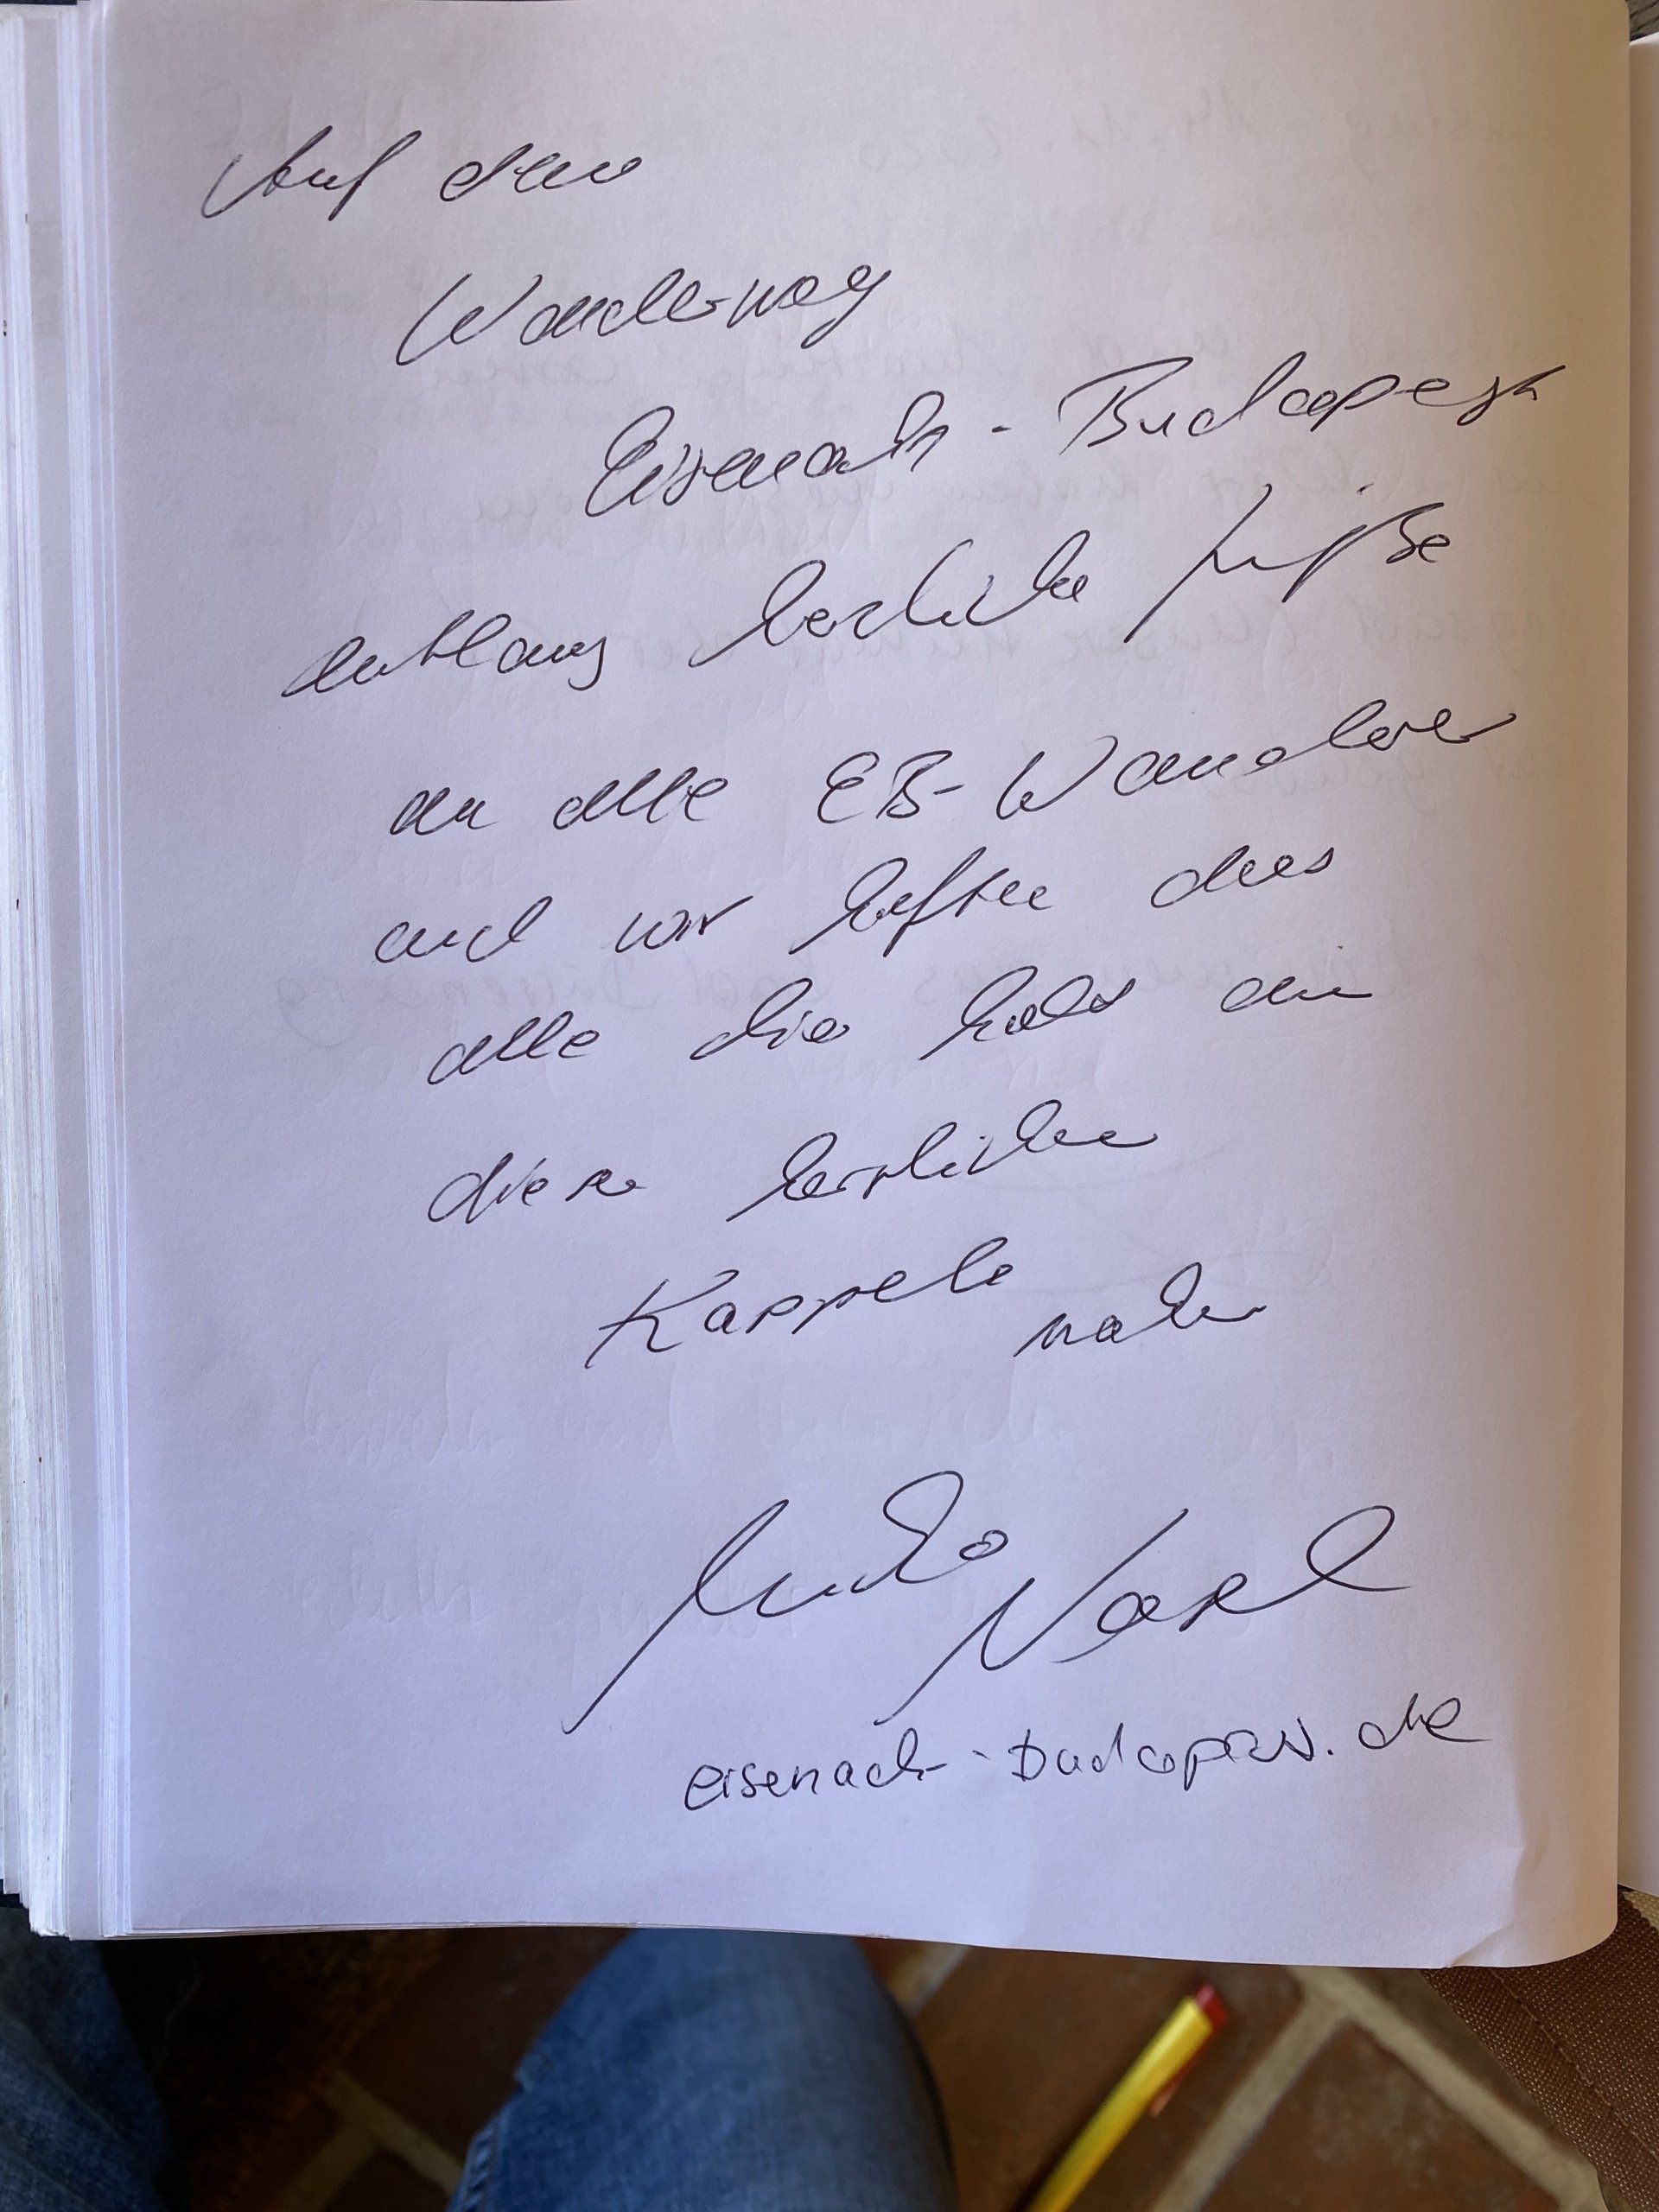 Auf dem
Wanderweg
Eisenach - Budapest
entlang herzliche Grüße
an alle EB-Wanderer
und wir hoffen das
alle die halt an
dieser herrlichen
Kappele machen
eisenach-budapest.de